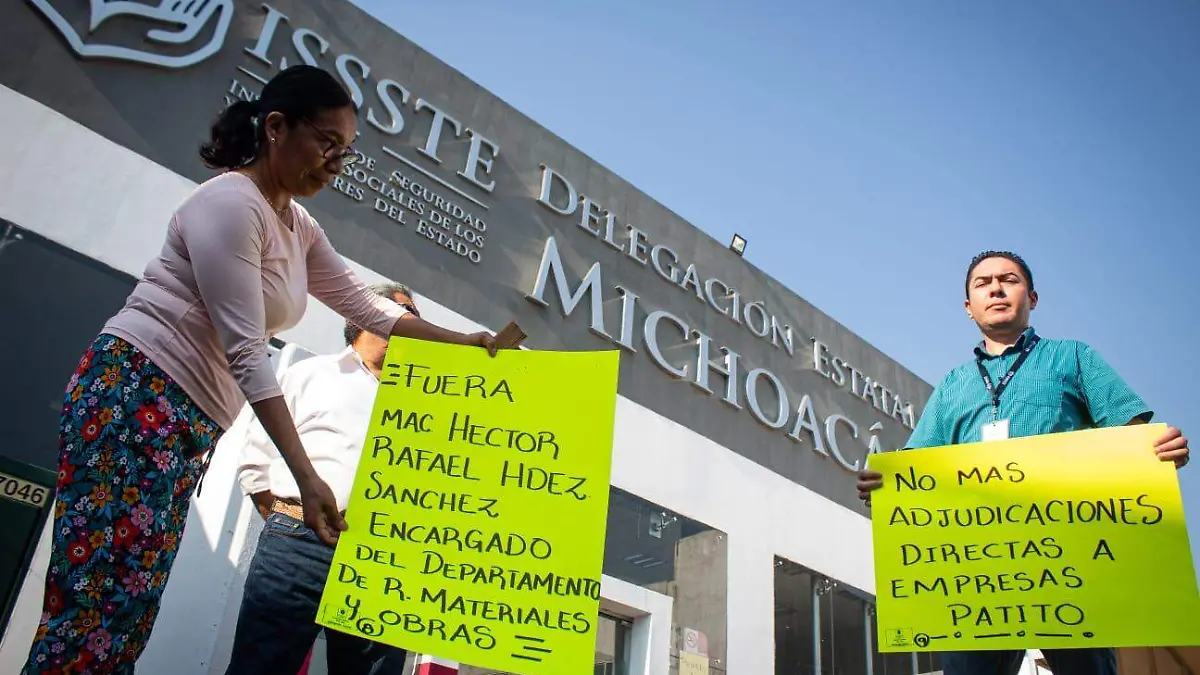 ISSSTE
DE SEGURIDAD
SOCIALES DE LOS
DEL ESTADO
DELEGACIÓN ESTATAL
MICHOACÁ
FUERA
MAC HECTOR
RAFAEL HDEZ
SANCHEZ
ENCARGADO
DEL DEPARTAMENTO
DE R. MATERIALES
Y OBRAS
NO MAS
ADJUDICACIONES
DIRECTAS A
EMPRESAS
PATITO
7046